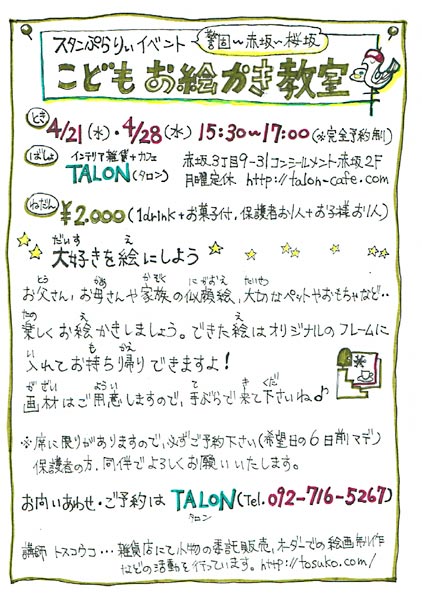 スタンぷらりぃイベント 警固〜赤坂〜桜坂
こどもお絵かき教室
とき 4/21(水)・4/28(水) 15:30〜17:00(※完全予約制)
ばしょ インテリア雑貨+カフェ TALON(タロン) 赤坂3丁目9-31コンシールメント赤坂2F
月曜定休 http://talon-cafe.com
ねだん ¥2.000(1drink+お菓子付,保護者お1人+お子様お1人)
だいす え
大好きを絵にしよう
とう かあ かぞく にがおえ たいせつ
お父さん,お母さんや家族の似顔絵,大切なペットやおもちゃなど‥
たの え え
楽しくお絵かきしましょう。できた絵はオリジナルのフレームに
い も かえ
入れてお持ち帰りできますよ!
がざい ようい て き くだ
画材はご用意しますので,手ぶらで来て下さいね♪
※席に限りがありますので,必ずご予約下さい(希望日の6日前マデ)
保護者の方,同伴でよろしくお願いいたします。
お問いあわせ・ご予約は TALON(Tel.092-716-5267)
タロン
講師 トスコウコ…雑貨店にて小物の委託販売,オーダーでの絵画制作
などの活動を行っています。http://tosuko.com/